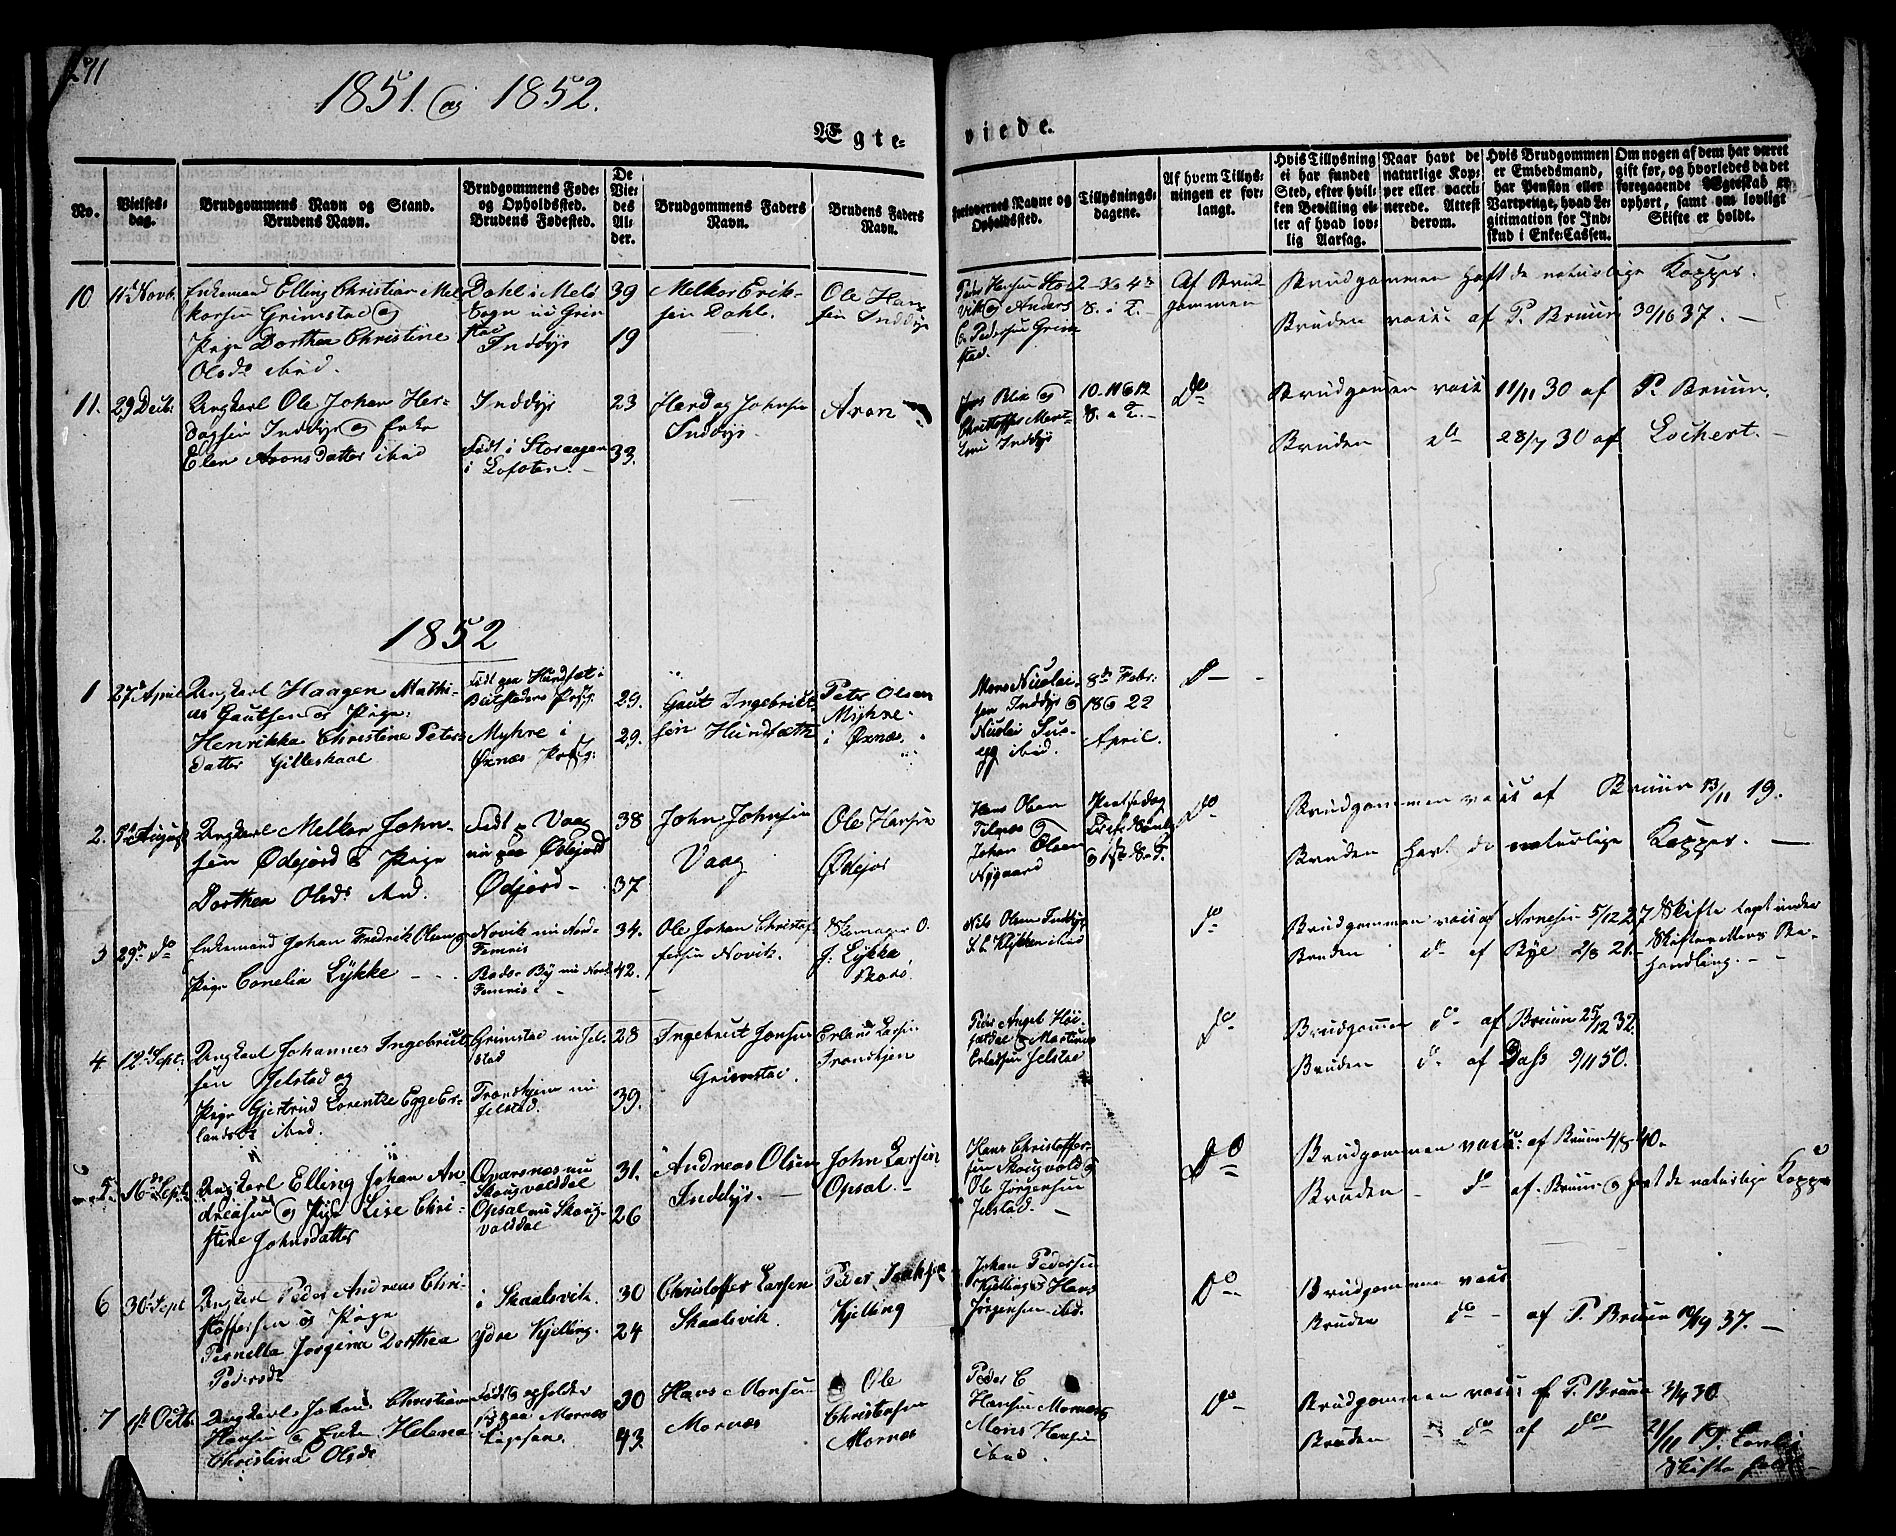 1851. og 1852.
Ægte-
viede.
No.
Vielses-
dag.
Brudgommens Navn og Stand.
Brudens Navn.
Brudgommens Føde-
og Opholdssted.
Brudens Fødested.
De
Vie-
des
Al-
der.
Brudgommens Faders
Navn.
Brudens Faders
Navn.
Forlovernes Navne og
Opholdssted.
Tillysnings-
dagene.
Af hvem Tillys-
ningen er for-
langt.
Hvis Tillysning
ei har fundet
Sted, efter hvil-
ken Bevilling el-
ler af hvad lov-
lig Aarsag.
Naar havt de
naturlige Kop-
per eller vacci-
nerede. Attest
derom.
Hvis Brudgommen
er Embedsmand,
har Pension eller
Vartpenge, hvad Le-
gitimation for Ind-
skud i Enke-Cassen.
Om nogen af dem har været
gift før, og hvorledes da det
foregaaende Ægteskab er
ophørt, samt om lovligt
Skifte er holdt.
10
11t Novb.
Enkemand Elling Christian Mel-
korsen Grimstad og
Pige Dorthea Christine
Olsdr ibid.
Dahl i Melø
Sogn nu Grim
stad
Inddyr
39
19
Melkor Erik-
sen Dahl.
Ole Han
sen Inddyr
Peder Hansen Stor
vik og Anders
C. Pedersen Grim
stad.
2- 3 og 4de
S. i T.-
Af Brud
gommen
Brudgommen haft de naturlige Kopper.
Bruden vacc: af P. Bruun 30/10 37. -
11.
29 Decbr
Ungkarl Ole Johan Her-
dagsen Inddyr og Enke
Elen Aronsdatter ibid
Inddyr
Født i Storvaagen
i Lofoten. -
23
33.
Herdag Johnsen
Inddyr.
Aron
Jens Blix og
Christoffer Mort-
ensen Inddyr
10. 11 og 12
S. a T. -
Do
Brudgommen vacc 11/11 30 af P. Bruun.
Bruden do 28/7 30 af Lochert. -
1852
1
27d April
Ungkarl Haagen Mathi-
as Gautsen og Pige:
Henrikka Christine Peters
datter Gilleskaal
Født paa Hundsæt i
Beitstadens Præstg:
Myhre i
Øxnæs Præstg:
29.
29.
Gaut Ingebrikt-
sen Hundsæth
Peter Olsen
Myhre
i Øxnæs.
Mons Nicolai-
sen Inddyr og
Nicolai
ibid.
8de Febr:
18 og 22
April.
D -
2.
5d August
Ungkarl Melker John-
sen Ødejord og Pige
Dorthea Olsdr ibid.
Født p. Vaag
nu paa Ødejord
Ødejord -
38
37
John Johnsen
Vaag
Ole Hansen
Ødejor
Hans Olsen
Johan Olsen
Nygaard
Do
Brudgommen vacc af Bruun 13/11 19.
Bruden havt de naturlige Kopper. -
3
29de do
Enkemand Johan Fredrik Olsen og
Pige Cornelia Lykke - . -
Novik nu Nord-
Femris
Bodø By nu Nord
Femris -
34.
42.
Ole Johan Christof
fersen Novik.
Skomager O.
J. Lykke
Bodø.
Nils Olsen Inddyr
ibid
do
Brudgommen vacc af Arnesen 5/12 27
Bruden do af Bye 2/8 21. -
Skifte holdt under
Skifteretters Be-
handling. - -
4
12t Septr:
Ungkarl Johannes Ingebrikt
sen Jelstad og
Pige Gjertrud Lorentze Egge Er-
landsdr ibid.
Grimstad nu Jel-
stad
Trondhjem nu
Jelstad.
28
39.
Ingebrikt Jonsen
Grimstad.
Erland Larsen
Trondhjem
Peder Angel Høi
Martinus
Erlandsen Jelstad
do
Brudgommen do af Bruun 25/12 32.
Bruden do af Dass 9/11 50.
5
16de Septr
Ungkarl Elling Johan An-
dreasen og Pige Lise Chri-
stine Johnsdatter
nu
Skougvalddal
Opsal nu Skoug-
valddal
31.
26
Andreas Olsen
Inddyr. -
John Larsen
Opsal. -
Hans Christoffer-
sen Skougvald og
Ole Jørgensen
Jelstad. -
Do
Brudgommen vacc: af Bruun 4/8 40.
Bruden - do af. Bruun og havt de naturlige Kopper
6
30t Sept
Ungkarl Peder Andreas Chri-
stoffersen og Pige
Pernella Jorgina Dorthea
Pedersdr
i Skaalsvik.
ydre Kjelling.
30
24
Christoffer Larsen
Skaalsvik.
Peder Isaksen
Kjelling
Johan Pedersen
Kjelling og Hans
Jørgensen ibid.
Do
Brudgommen vacc
Bruden do - af P. Bruun 19/9 37. -
7
1st Octb.
Ungkarl Johan Christian
Hansen og Enke Helena
Christina Olsdr
Født og opholder
sig paa Mornæs
30
43.
Hans Monsen
Mornæs
Ole
Christensen
Mornæs
Peder C
Hansen Mornæs
Mons Hansen
ibid.
Do
Brudgommen vacc: af P. Bruun 3/9 30.
Bruden - do af do 21/11 19.
Skifte